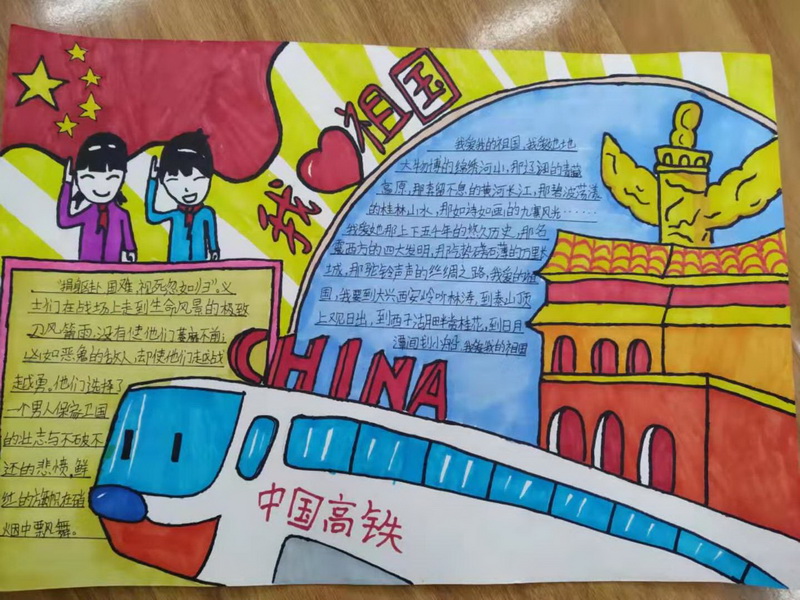 我 祖国
我爱我的祖国,我爱她地
大物博的锦绣河山,那辽阔的青藏
高原,那奔腾不息的黄河长江,那碧波荡漾
的桂林山水,那如诗如画的九寨风光……
我爱她那上下五千年的悠久历史,那名
震西方的四大发明,那气势磅礴的万里长
城,那驼铃声声的丝绸之路,我爱我的祖
国,我要到大兴安岭听林涛,到泰山顶
上观日出,到西子湖畔桂花,到日月
潭间划小船 我爱我的祖国
"捐躯赴国难,视死忽如归"义
士们在战场上走到生命风景的极致
刀风箭雨没有使他们萎靡不前;
凶如恶兽的敌人,却使他们走战
越勇。他们选择了
一个男人保家卫国
的壮志与不破不
还的悲愤,鲜
红的旗帜在硝
烟中飘舞。
CHINA
中国高铁